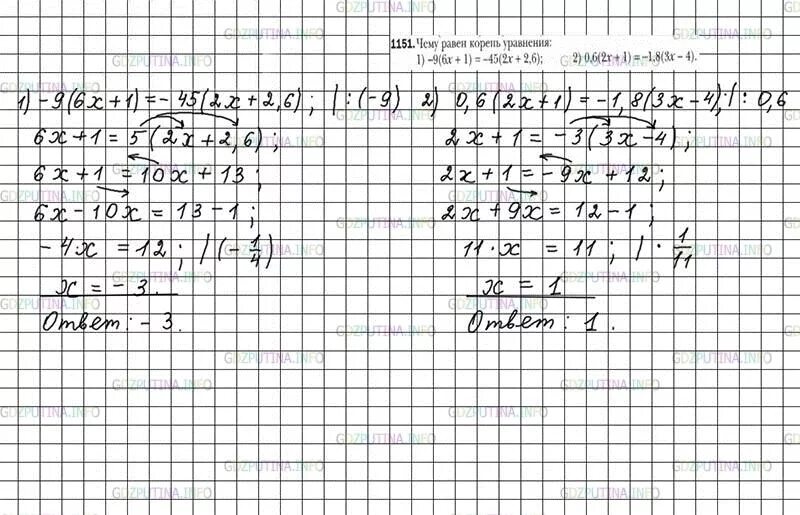 1151. Чему равен корень уравнения:
1) –9(6x + 1) = –45(2x + 2,6); 2) 0,6(2x + 1) = –1,8(3x – 4).
1) -9(6x+1)=-45(2x+2,6); |:(-9)
6x+1=5(2x+2,6);
6x+1=10x+13;
6x-10x=13-1;
-4x=12; |(-1/4)
x=-3.
Ответ: -3.
2) 0,6(2x+1)=-1,8(3x-4); |:0,6
2x+1=-3(3x-4);
2x+1=-9x+12;
2x+9x=12-1;
11·x=11; |·1/11
x=1
Ответ: 1.
GDZPUTINA.INFO